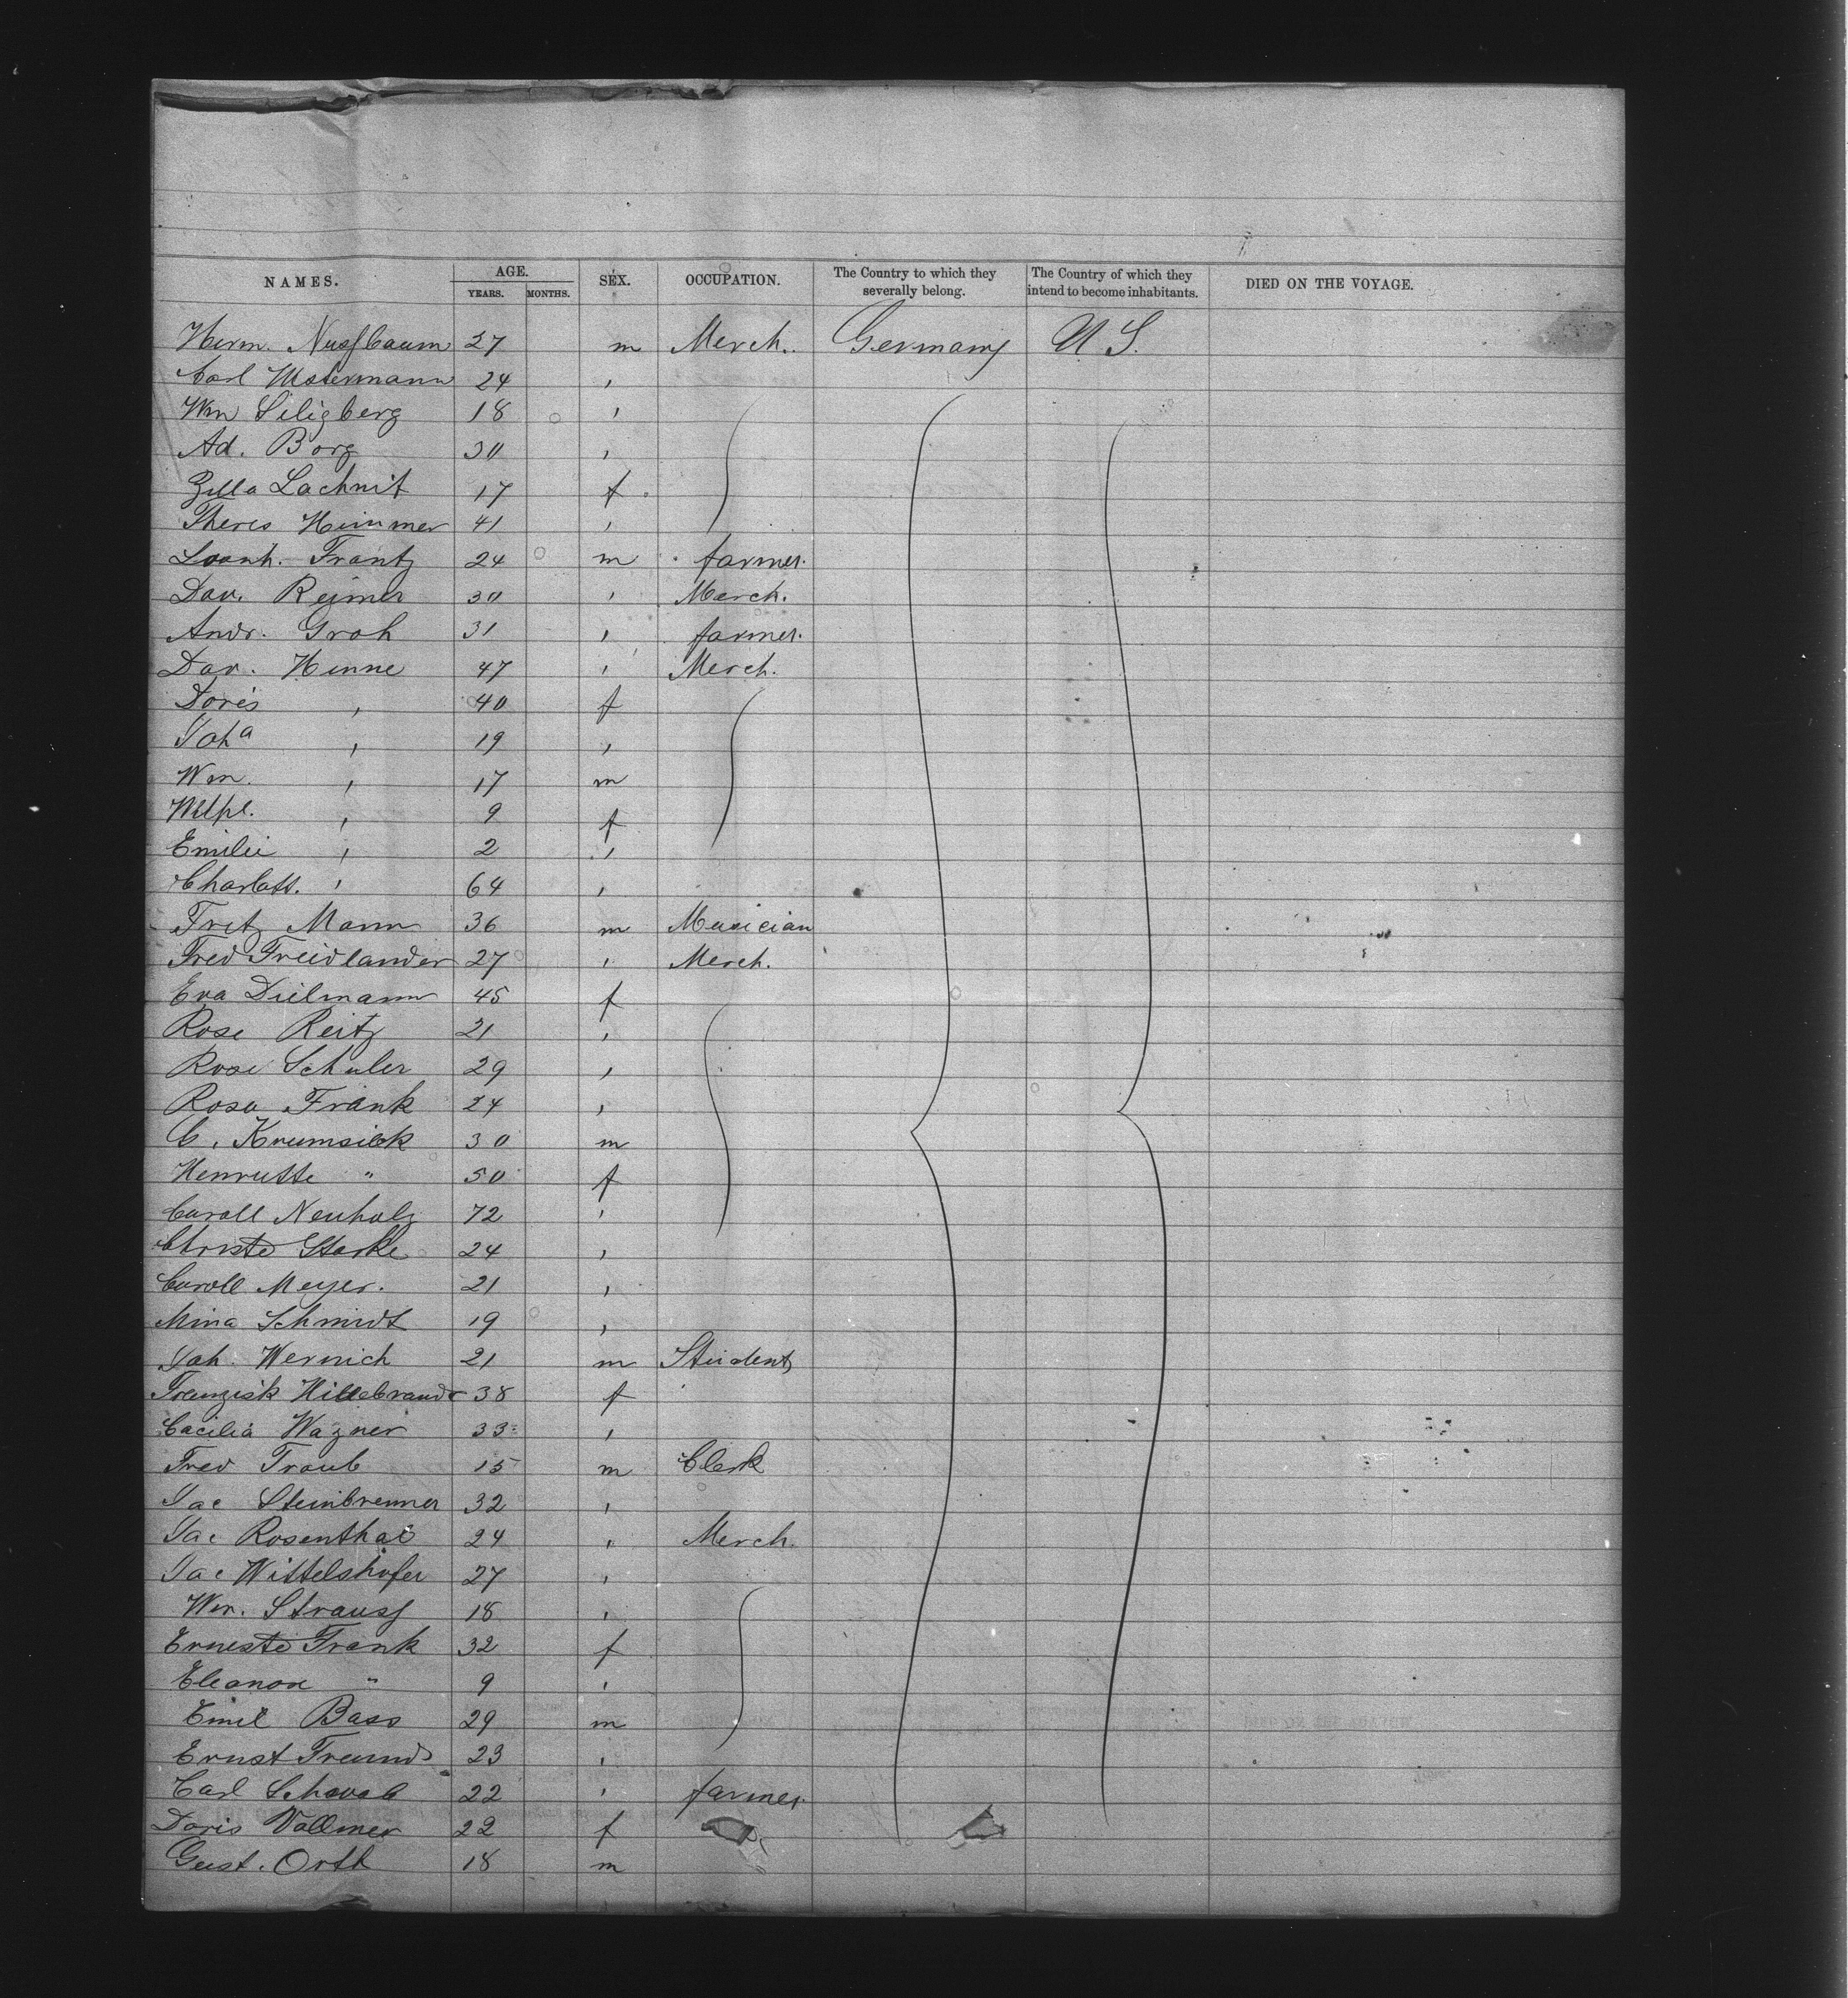 NAMES. AGE. YEARS. MONTHS. SEX. OCCUPATION. The Country to which they severally belong. The Country of which they intend to become inhabitants. DIED ON THE VOYAGE.
Herm. Nussbaum 27 m Merch. Germany U S.
Carl Ustermann 24 "
Wm Seligberg 18 "
Ad. Borg 30 "
Zilla Lachnit 17 f
Theres Himmer 41 "
Leonh. Frantz 24 m farmer.
Dav. Reimer 30 " Merch.
Andr. Groh 31 " farmer.
Dav. Henne 47 " Merch.
Doris " 40 f
Joha " 19 "
Wm. " 17 m
Wilhe. " 9 f
Emilie " 2 "
Charlott. " 64 "
Fritz Mann 36 m Musician
Fred Freidlander 27 " Merch.
Eva Dielmann 45 f
Rose Reitz 21 "
Rose Schuler 29 "
Rosa Frank 24 "
C. Krumsiek 30 m
Henriette " 50 f
Caroll Neuholz 72 "
Christe Starke 24 "
Caroll Meyer. 21 "
Mina Schmidt 19 "
Joh. Wernich 21 m Student
Franzisk Hillebrandt 38 f
Cacilia Wagner 33 "
Fred Traub 15 m Clerk
Jac Steinbrenner 32 "
Jac Rosenthal 24 " Merch.
Jac Wittelshofer 27 "
Wm. Strauss 18 "
Erneste Frank 32 f
Eleanor " 9 "
Emil Bass 29 m
Ernst Freund 23 "
Carl Schwab 22 " farmer.
Doris Vollmer 22 f
Gust. Orth 18 m